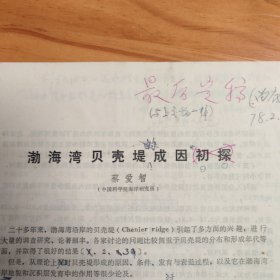 最后定稿
78.2.
渤海湾贝壳堤成因初探
的
蔡爱智
（中国科学院海洋研究所）
二十多年来，渤海湾沿岸的贝壳堤（Chenier ridge）引起了多方面的兴趣，进行
大量的调查研究，论著颇丰。各家讨论的问题比较侧重于贝壳堤的分布和形成年代等
面，并取得了极好的结果（1，2，
但是，从理论上对贝壳堤形成的原因、条件、发育与衰退过程，以及它在渤海湾
岸地貌和沉积层发育中的作用等很少论及。